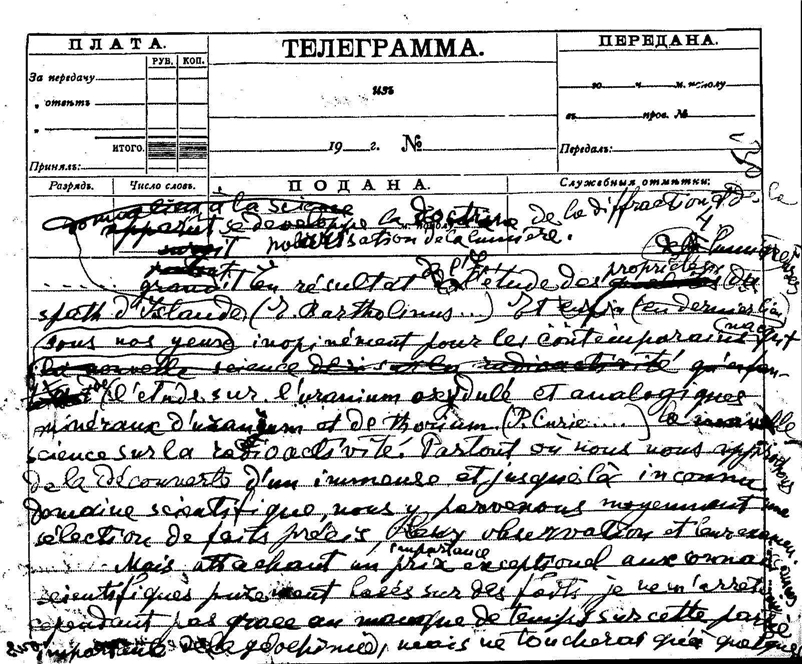 ПЛАТА.
РУБ. КОП.
За передачу
„ отвѣтъ
„
ИТОГО.
Принялъ:
ТЕЛЕГРАММА.
изъ
19 г. №
ПЕРЕДАНА.
го ч. м. полу
въ пров. №
Передалъ:
Разрядъ. Число словъ. ПОДАНА. Служебныя отмѣтки:
à la science
apparut se développe la doctrine de la diffraction et de la
polarisation de la lumière.
grandit en résultat de l'étude des propriétés du
spath d'Islande (E. Bartholinus...) Et enfin (en dernier lieu
sous nos yeux inopinément pour les contemporains
la nouvelle science de la radioactivité
l'étude sur l'uranium oxydulé et analogiques
minéraux d'uranium et de thorium (P. Curie....) la nouvelle
science sur la radioactivité. Partout où nous nous
de la découverte d'un immense et jusque là inconnu
domaine scientifique, nous y parvenons moyennant une
sélection de faits précis leur observation et leur examen.
importance
Mais attachant un prix exceptionel aux
scientifiques purement basés sur des faits je ne m'arrête
cependant pas grace au manque de temps sur cette partie
importante de la mais ne toucherai qu'à